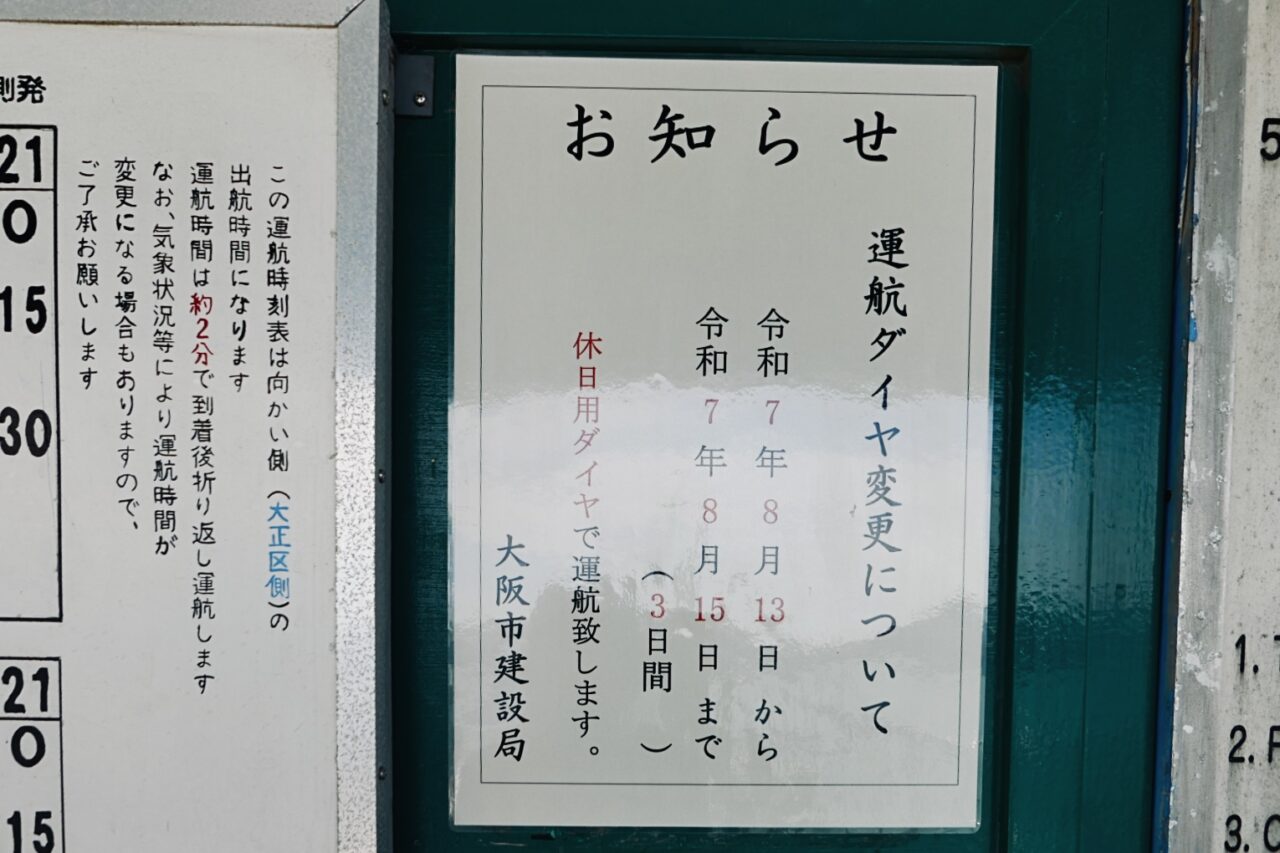 お知らせ
運航ダイヤ変更について
令和7年8月13日から
令和7年8月15日まで
（3日間）
休日用ダイヤで運航致します。
大阪市建設局
この運航時刻表は向かい側（大正区側）の
出航時間になります
運航時間は約2分で到着後折り返し運航します
なお、気象状況等により運航時間が
変更になる場合もありますので、
ご了承お願いします
側発
21
0
15
30
21
0
15
5
1.
2.
3.